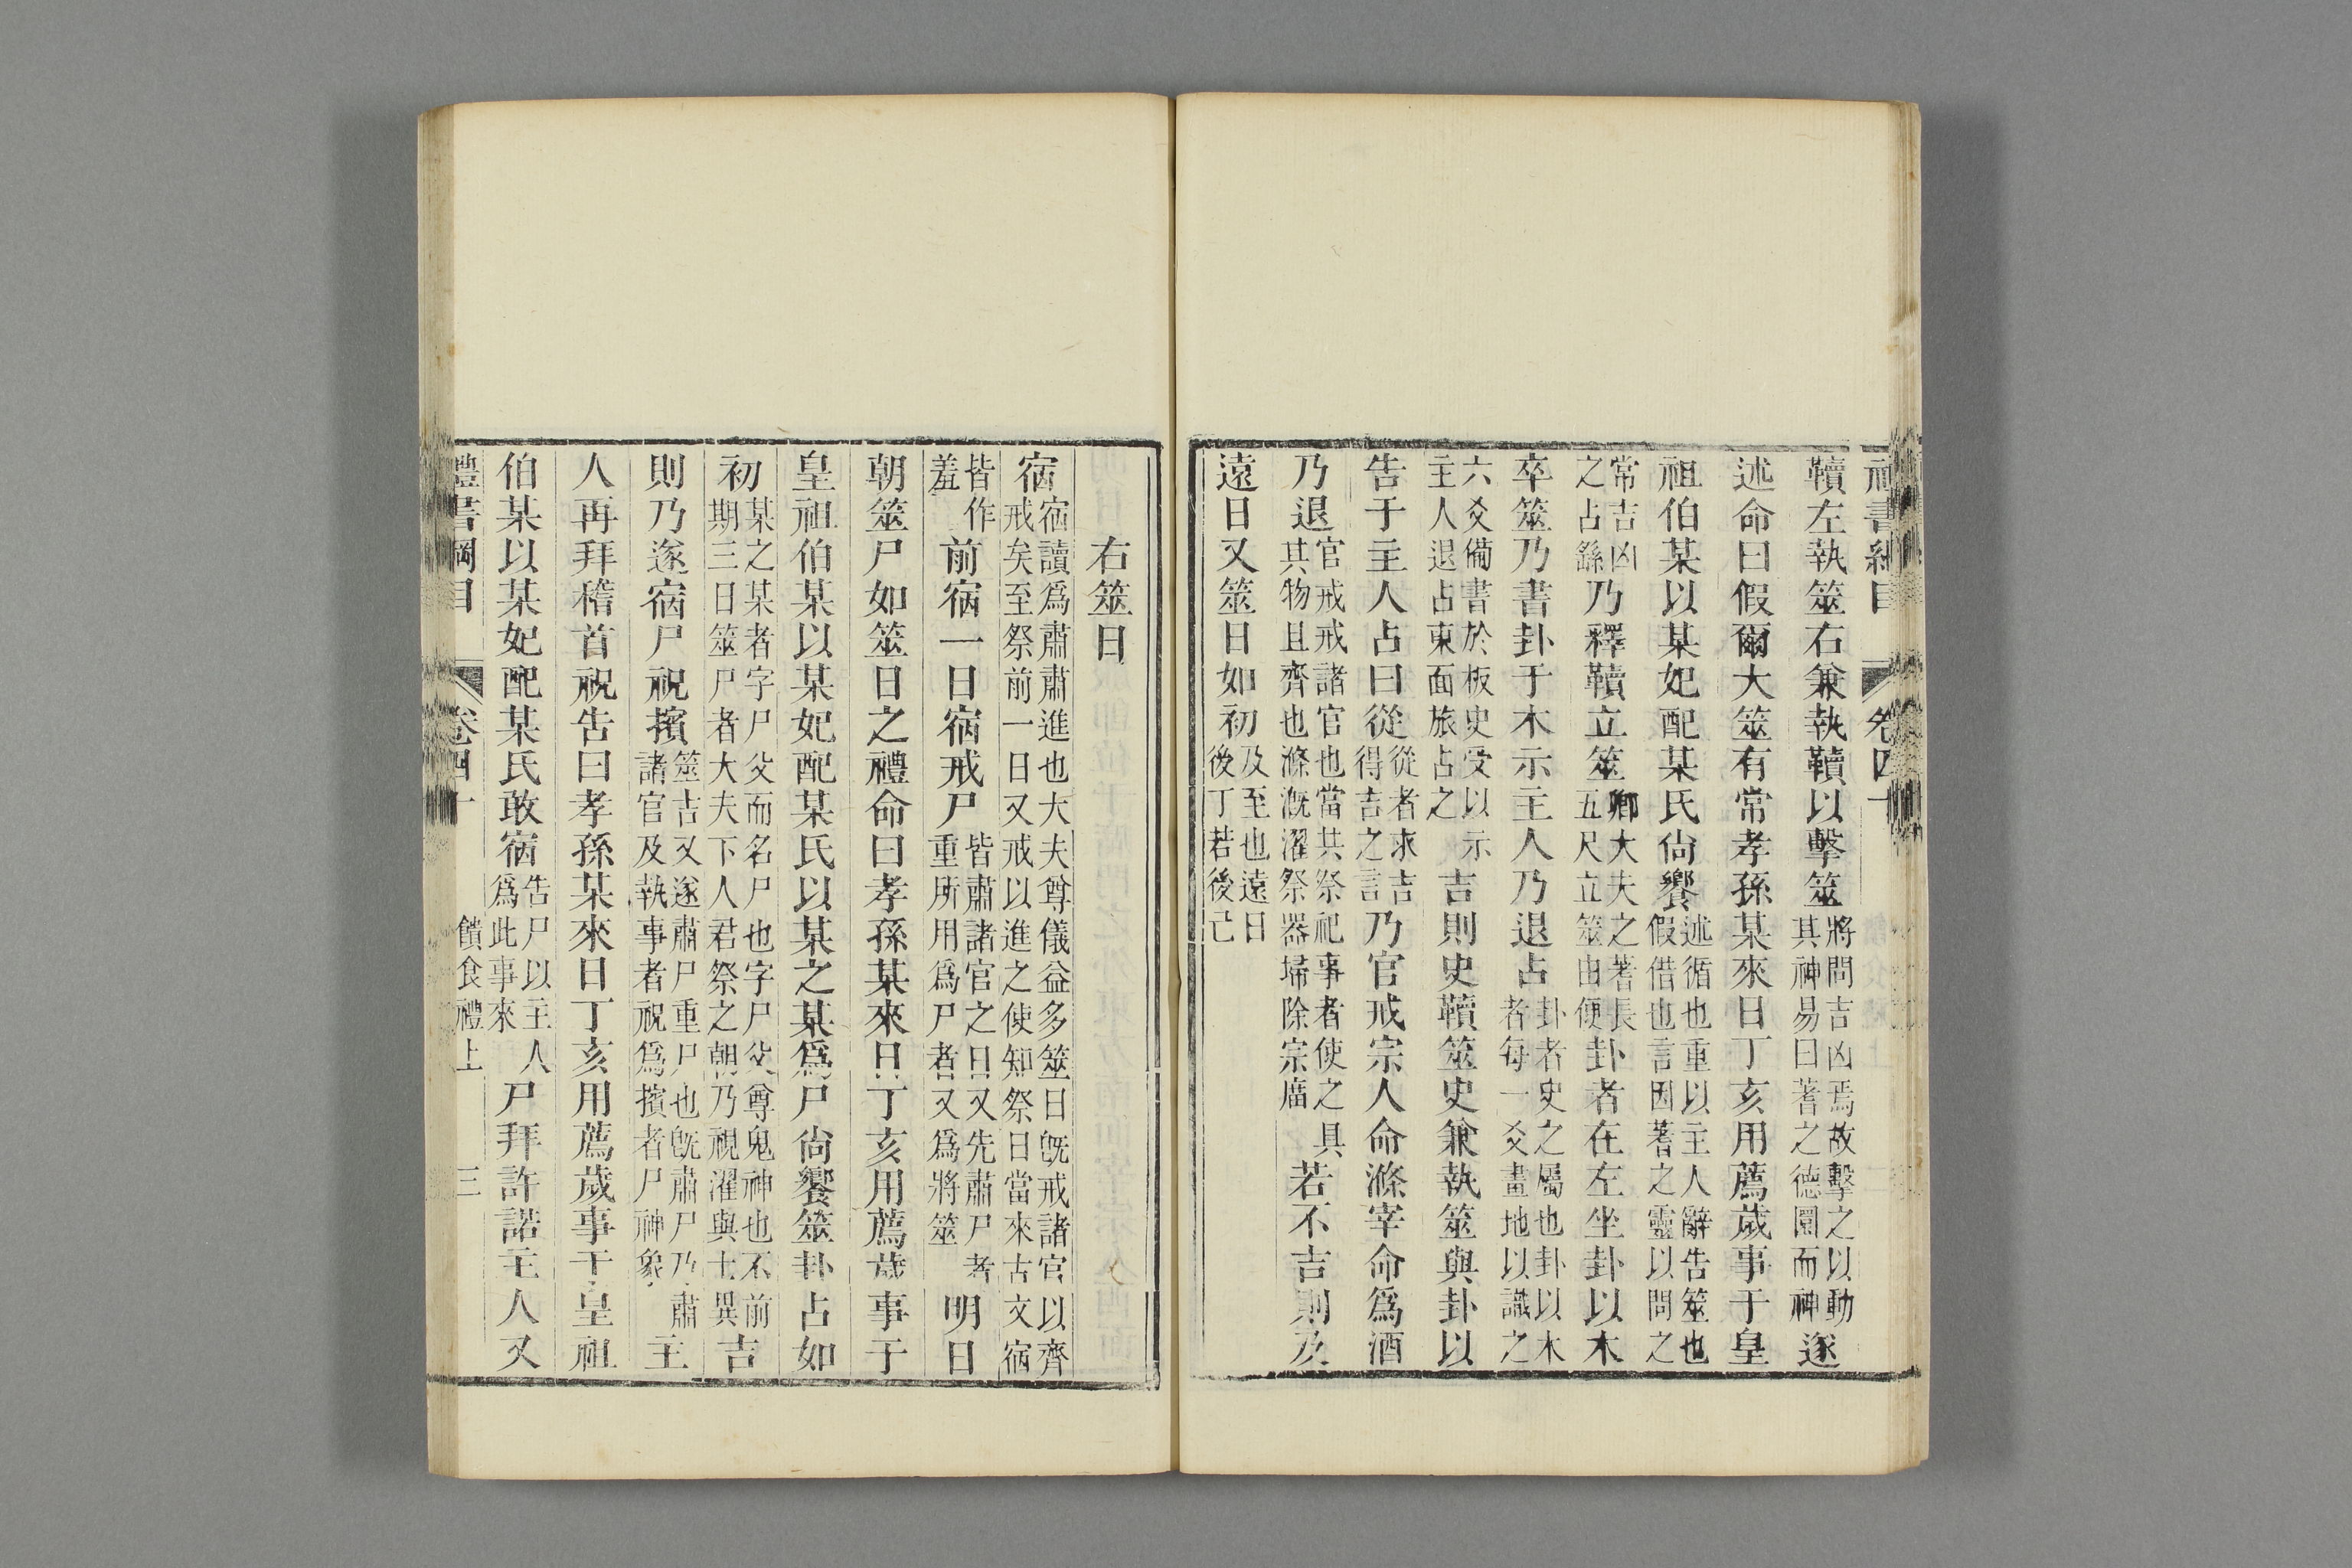 禮書綱目 卷四十
韇左執筮右兼執韇以擊筮將問吉凶焉故擊之以動其神易曰蓍之德圓而神遂
述命曰假爾大筮有常孝孫某來日丁亥用薦歲事于皇
祖伯某以某妃配某氏尙饗述循也重以主人辭告筮也假借也言因蓍之靈以問之
常吉凶之占繇乃釋韇立筮卿大夫之蓍長五尺立筮由便卦者在左坐卦以木
卒筮乃書卦于木示主人乃退占卦者史之屬也卦以木者每一爻畫地以識之
六爻備書於板史受以示主人退占東面旅占之吉則史韇筮史兼執筮與卦以
告于主人占曰從從者求吉得吉之言乃官戒宗人命滌宰命爲酒
乃退官戒戒諸官也當共祭祀事者使之具其物且齊也滌漑濯祭器埽除宗廟若不吉則及
遠日又筮日如初及至也遠日後丁若後己
右筮日
宿宿讀爲肅肅進也大夫尊儀益多筮日旣戒諸官以齊戒矣至祭前一日又戒以進之使知祭日當來古文宿
皆作羞前宿一日宿戒尸皆肅諸官之日又先肅尸者重所用爲尸者又爲將筮明日
朝筮尸如筮日之禮命曰孝孫某來日丁亥用薦歲事于
皇祖伯某以某妃配某氏以某之某爲尸尙饗筮卦占如
初某之某者字尸父而名尸也字尸父尊鬼神也不前期三日筮尸者大夫下人君祭之朝乃視濯與士異吉
則乃遂宿尸祝擯筮吉又遂肅尸重尸也旣肅尸乃肅諸官及執事者祝爲擯者尸神象主
人再拜稽首祝告曰孝孫某來日丁亥用薦歲事于皇祖
伯某以某妃配某氏敢宿告尸以主人爲此事來尸拜許諾主人又
禮書綱目 卷四十 饋食禮上 三